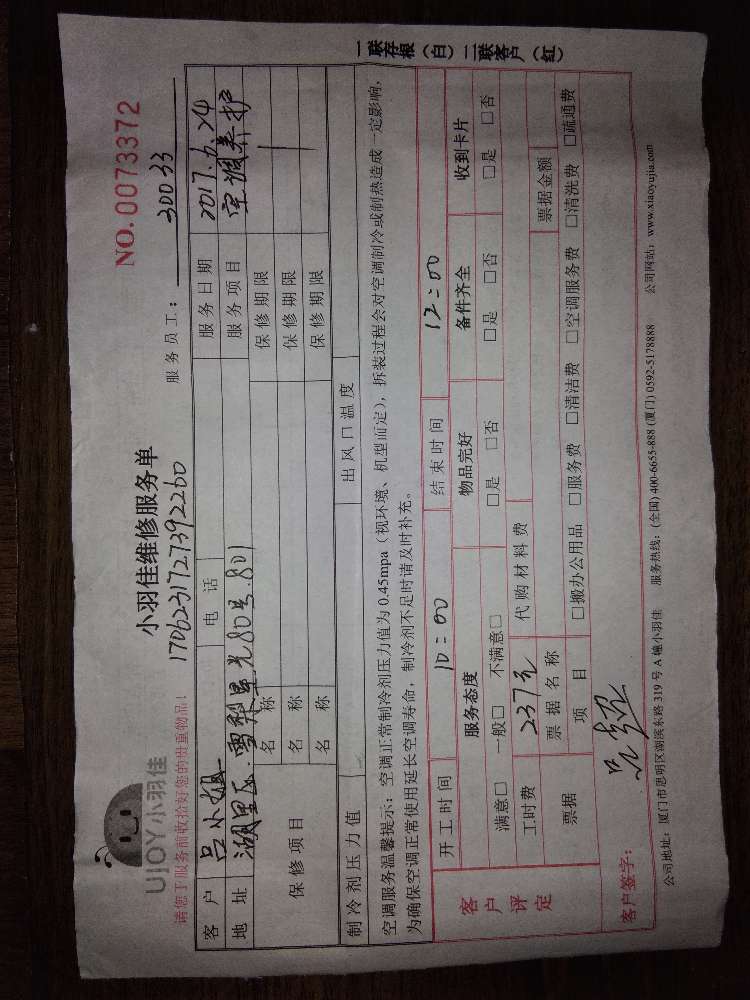 NO.0073372
UJOY小羽佳
小羽佳维修服务单
请您于服务前收拾好您的贵重物品！
1706231727392260
服务员工： 30033
客户 吕小姐 电话 服务日期 2017.6.24
地址 湖里区. 80号.801 服务项目 空调养护
保修项目 名称 保修期限
名称 保修期限
名称 保修期限
制冷剂压力值 出风口温度
空调服务温馨提示：空调正常制冷剂压力值为0.45mpa（视环境、机型而定），拆装过程会对空调制冷或制热造成一定影响，
为确保空调正常使用延长空调寿命，制冷剂不足时请及时补充。
客户评定 开工时间 10:00 结束时间 12:00
服务态度 物品完好 备件齐全 收到卡片
满意□ 一般□ 不满意□ □是 □否 □是 □否 □是 □否
工时费 237元 代购材料费
票据 票据名称 票据金额
项目 □搬办公用品 □服务费 □清洁费 □空调服务费 □清洗费 □疏通费
客户签字：
公司地址：厦门市思明区湖滨东路319号A幢小羽佳 服务热线：(全国) 400-6655-888 (厦门) 0592-5178888 公司网站：www.xiaoyujia.com
一联存根（白）二联客户（红）